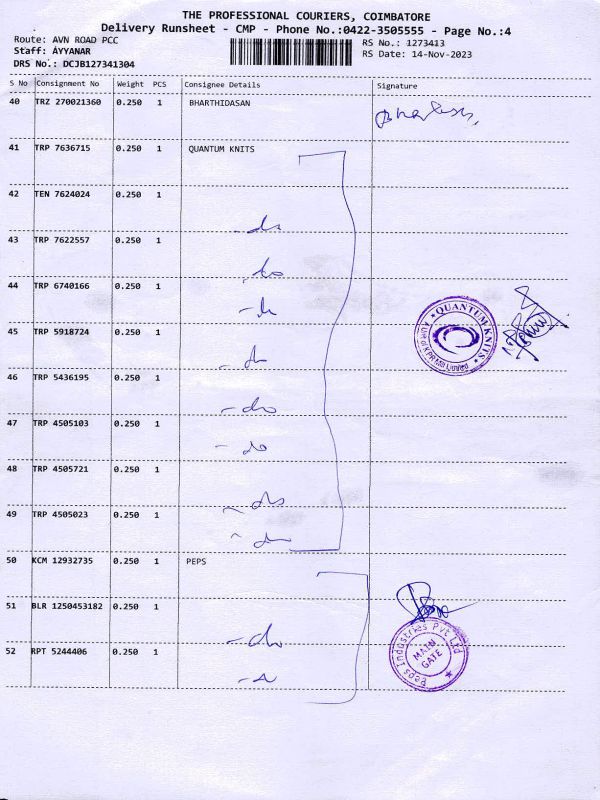 THE PROFESSIONAL COURIERS, COIMBATORE
Delivery Runsheet - CMP - Phone No.:0422-3505555 - Page No.:4
Route: AVN ROAD PCC
RS No.: 1273413
Staff: AYYANAR
RS Date: 14-Nov-2023
DRS No.: DCJB127341304
S No Consignment No Weight PCS Consignee Details Signature
40 TRZ 270021360 0.250 1 BHARTHIDASAN
41 TRP 7636715 0.250 1 QUANTUM KNITS
42 TEN 7624024 0.250 1
- do
43 TRP 7622557 0.250 1
- do
44 TRP 6740166 0.250 1
- do
QUANTUM KNITS
A Unit of KPR Mill Limited
45 TRP 5918724 0.250 1
- do
46 TRP 5436195 0.250 1
- do
47 TRP 4505103 0.250 1
- do
48 TRP 4505721 0.250 1
- do
49 TRP 4505023 0.250 1
- do
50 KCM 12932735 0.250 1 PEPS
51 BLR 1250453182 0.250 1
- do
Peps Industries Pvt Ltd
MAIN
GATE
52 RPT 5244406 0.250 1